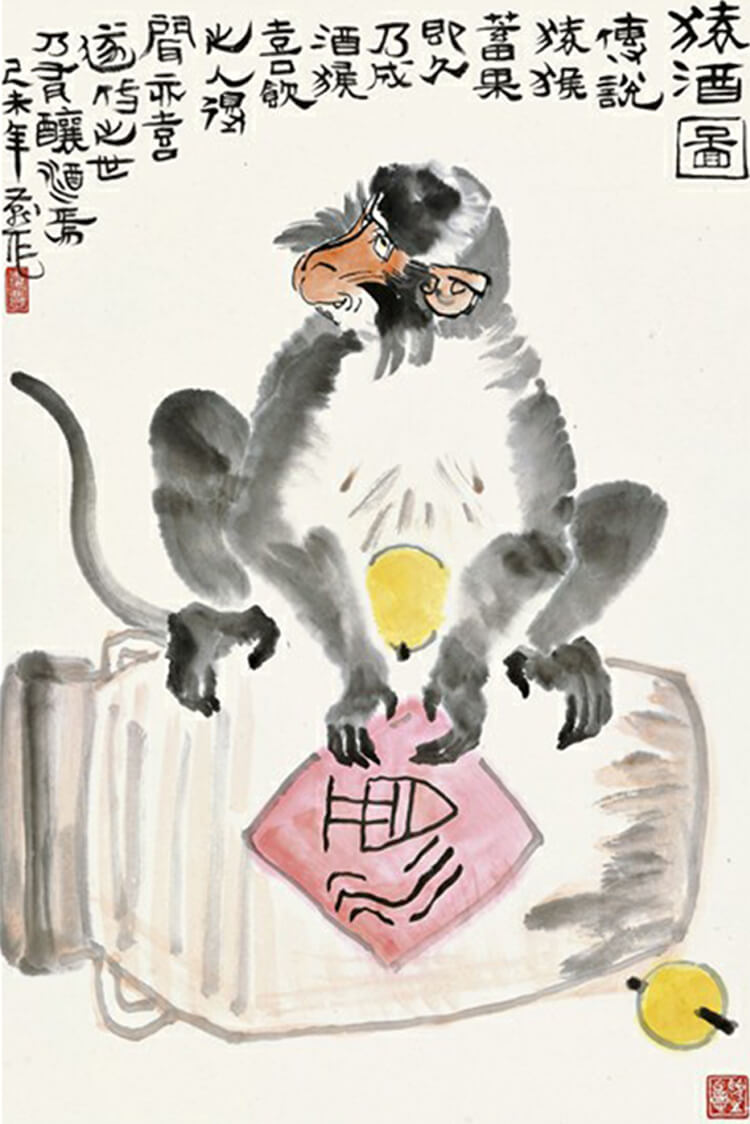 猿酒圖
傳說
猿猴
蓄果
即久
乃成
酒猴
喜飲
之人得
間亦喜
遂之世
乃有釀酒焉
己未年作
酒